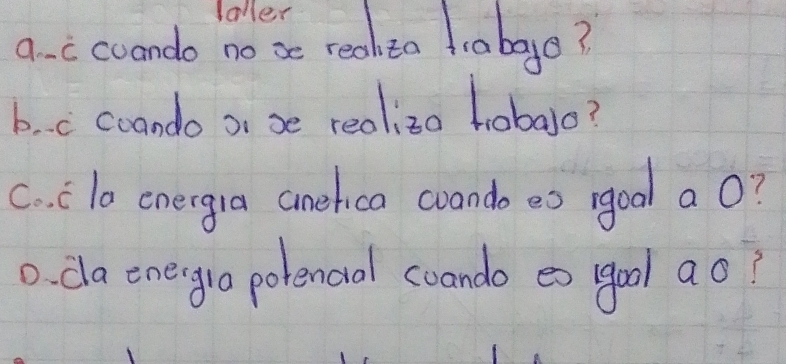 Taller
a.-¿ cuando no se realiza trabajo?
b..-¿ cuando si se realiza trabajo?
C..¿ la energia cinetica cuando es igual a 0?
D-¿la energia potencial cuando es igual a 0?